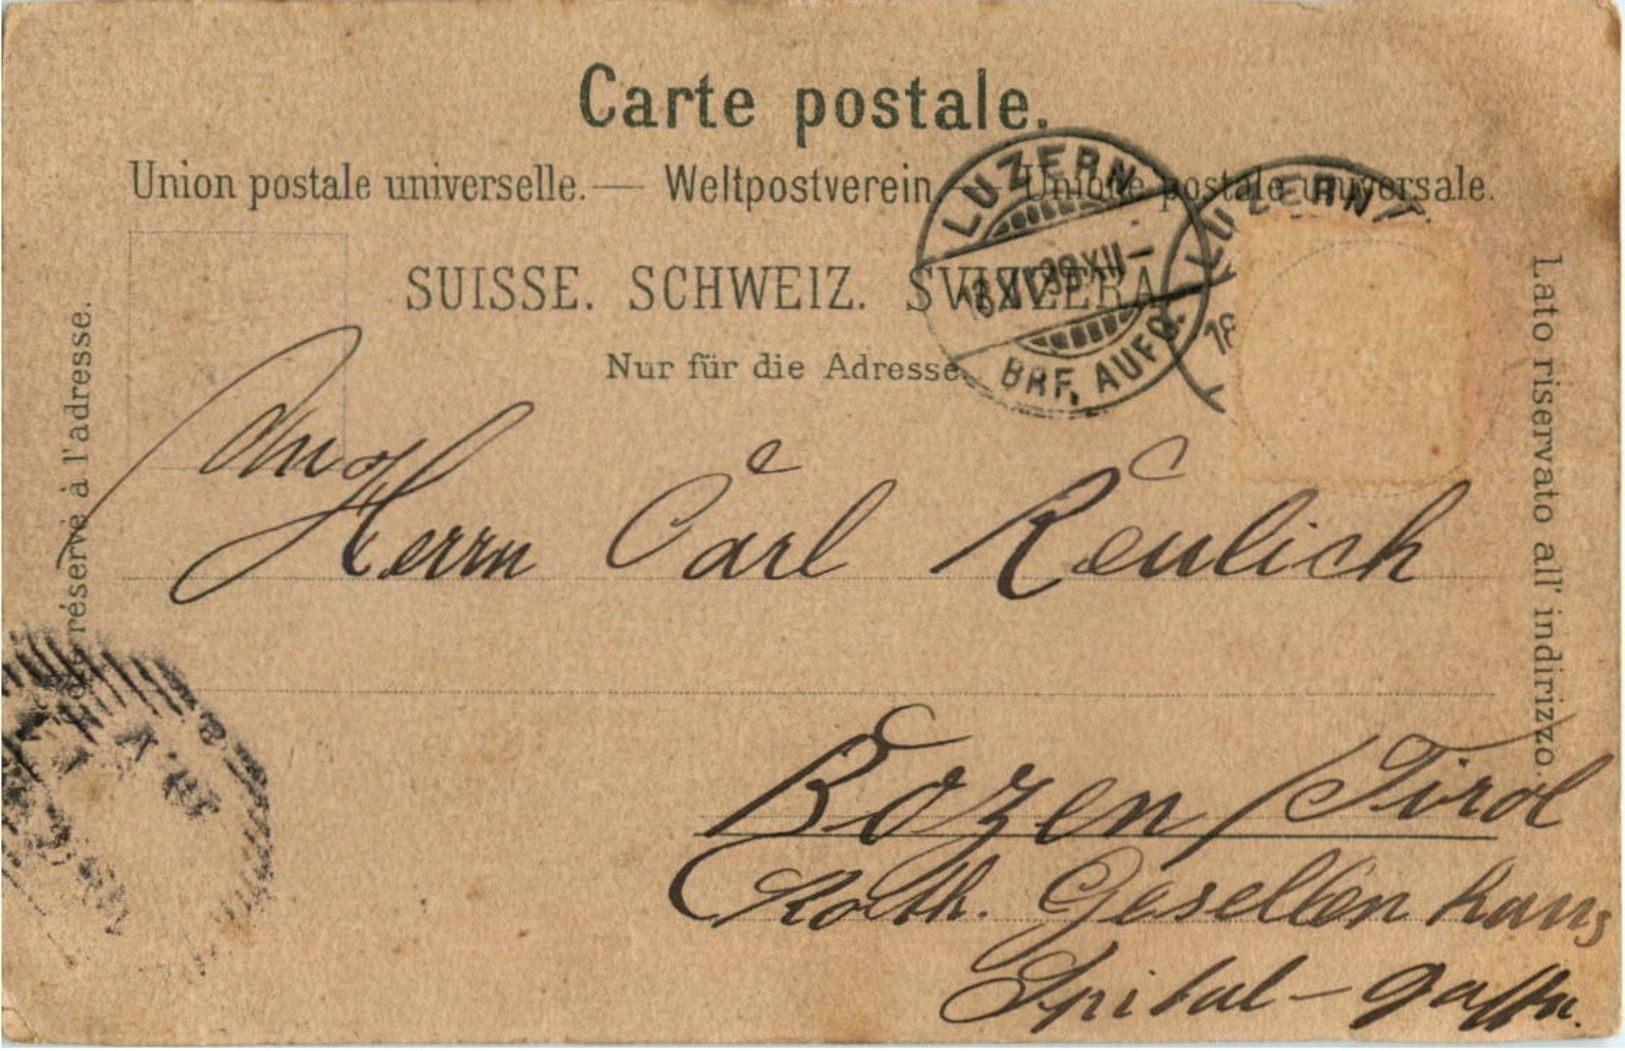 Carte postale.
Union postale universelle. — Weltpostverein — Unione postale universale.
SUISSE. SCHWEIZ. SVIZZERA
Nur für die Adresse
réservé à l'adresse.
Lato riservato all' indirizzo.
LUZERN
XII
BRF. AUFG.
LUZERN
An
Herrn Carl Reulich
Bozen / Tirol
Kath. Gesellenhaus
Spital-gasse.